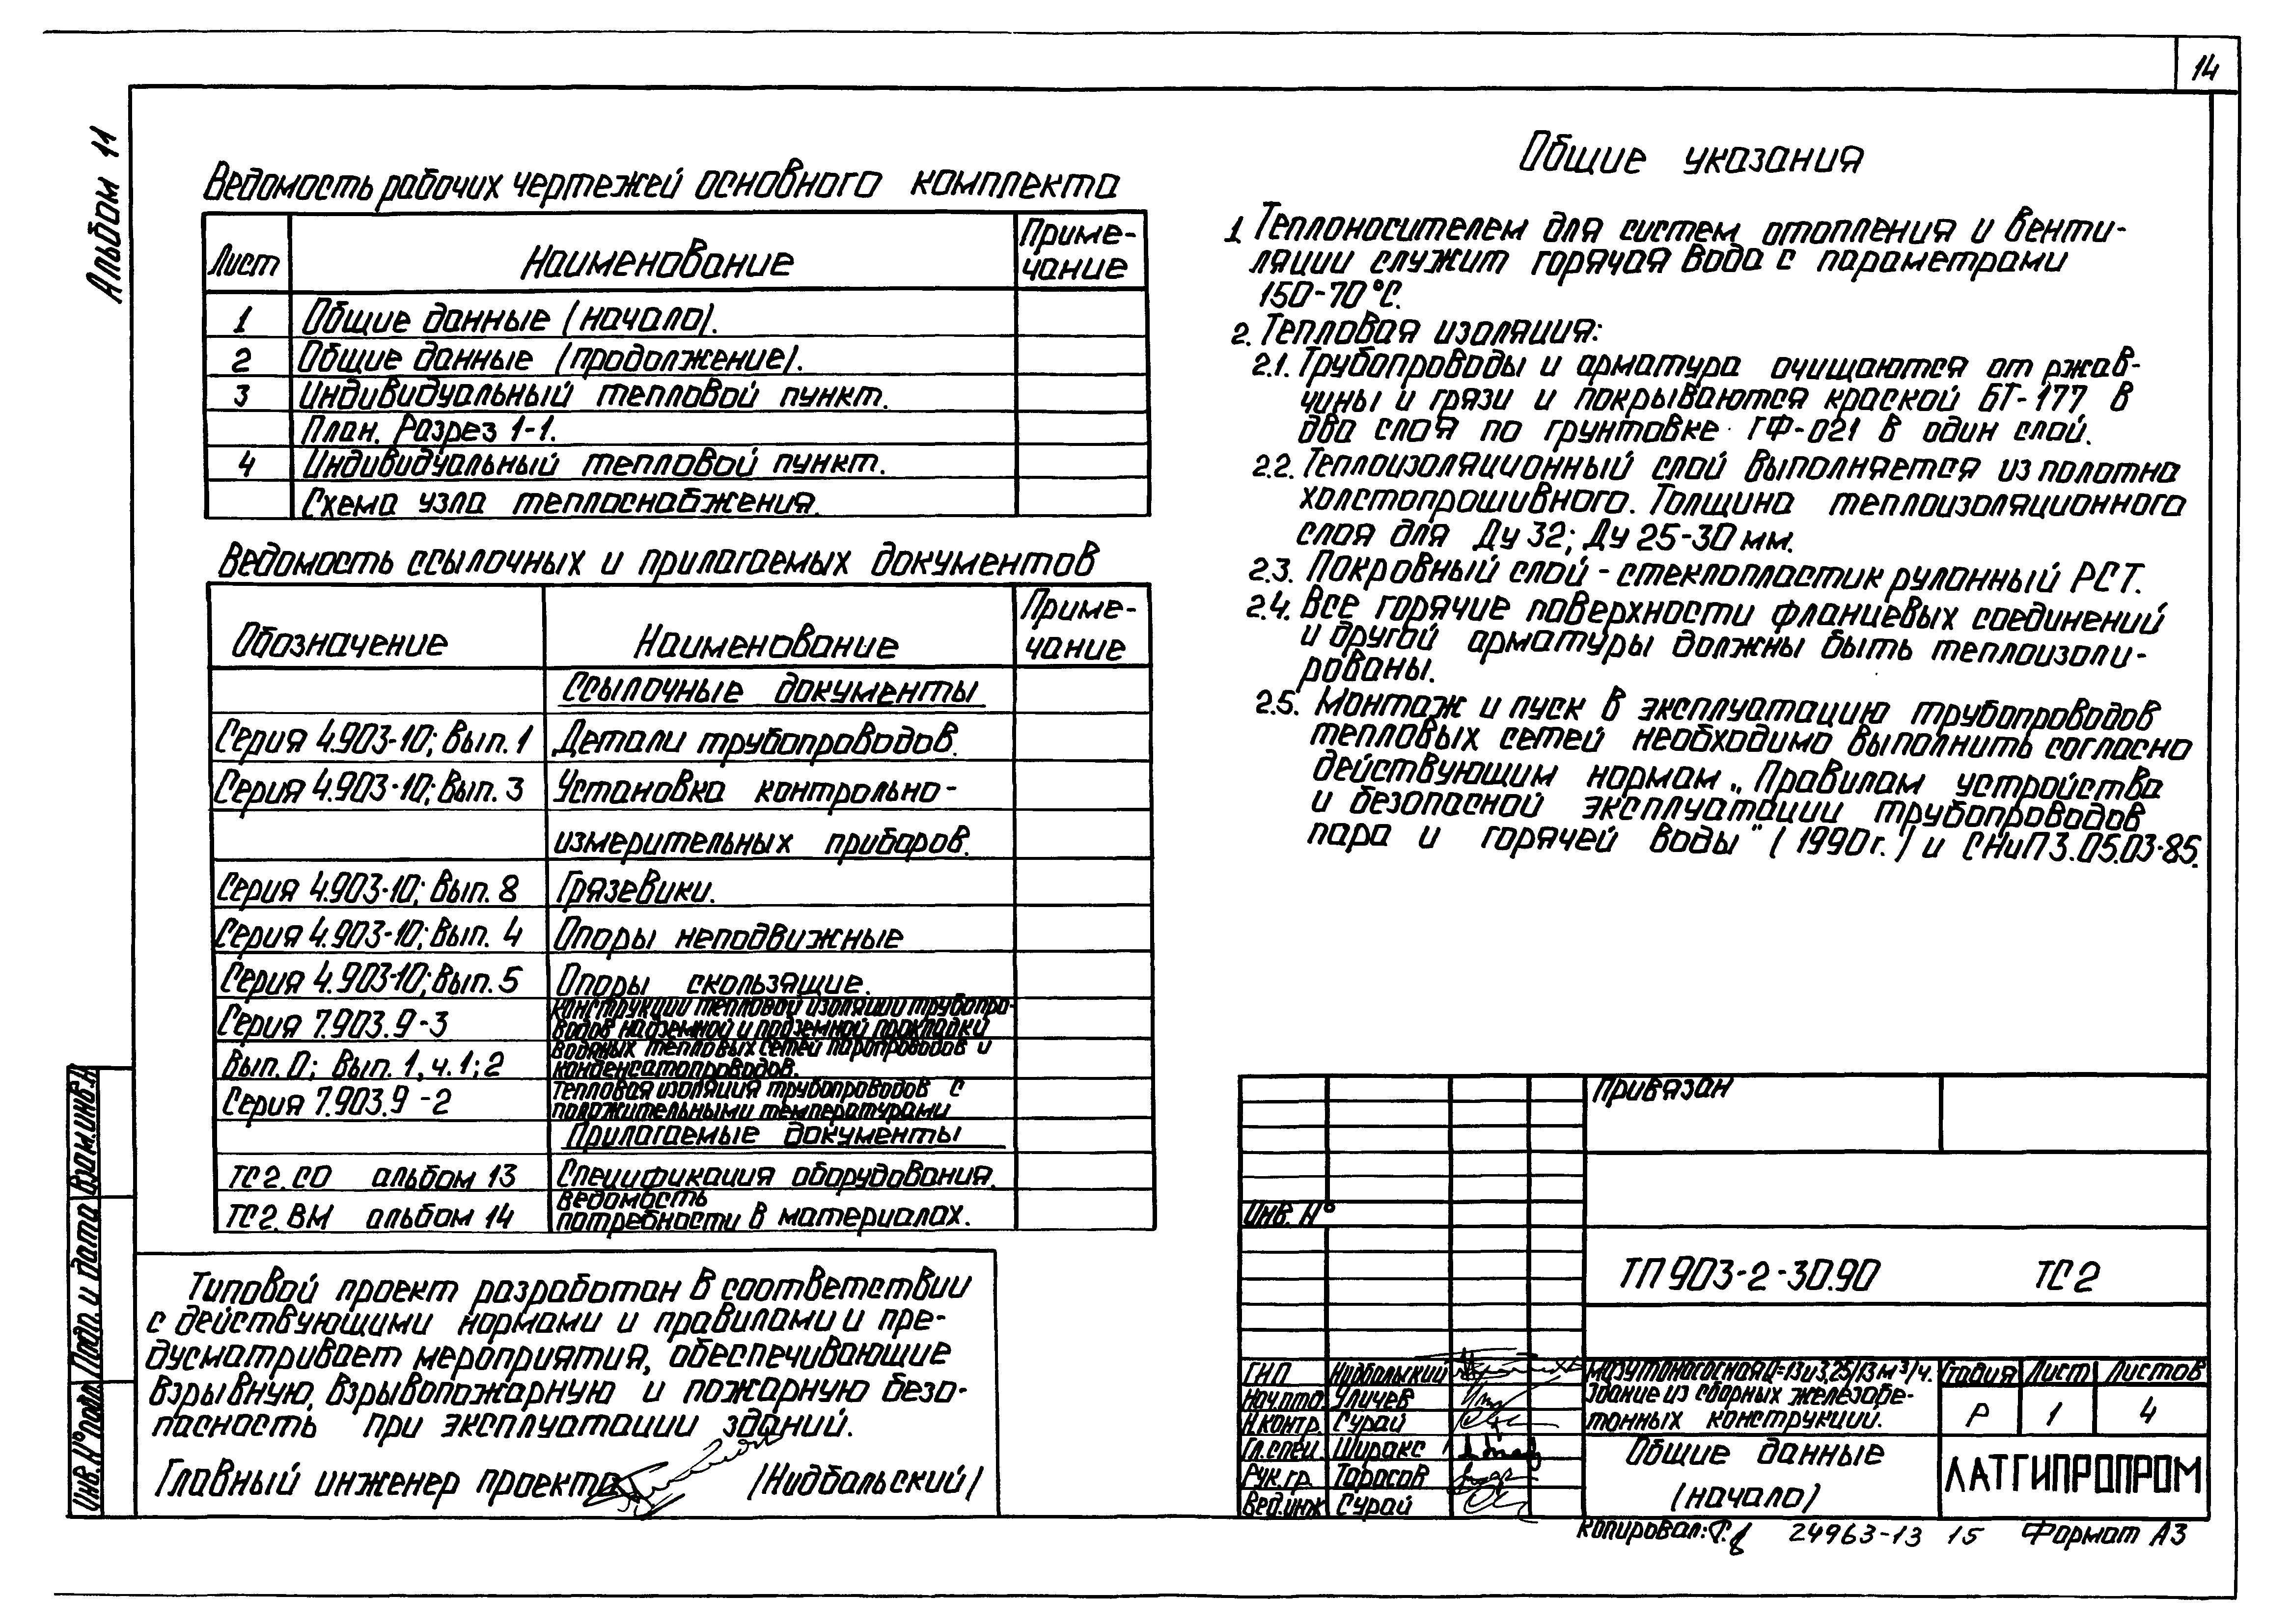 14
Альбом 11
Ведомость рабочих чертежей основного комплекта
Лист Наименование Приме-
чание
1 Общие данные (начало).
2 Общие данные (продолжение).
3 Индивидуальный тепловой пункт.
План. Разрез 1-1.
4 Индивидуальный тепловой пункт.
Схема узла теплоснабжения.
Ведомость ссылочных и прилагаемых документов
Обозначение Наименование Приме-
чание
Ссылочные документы
Серия 4.903-10; Вып. 1 Детали трубопроводов.
Серия 4.903-10; Вып. 3 Установка контрольно-
измерительных приборов.
Серия 4.903-10; Вып. 8 Грязевики.
Серия 4.903-10; Вып. 4 Опоры неподвижные
Серия 4.903-10; Вып. 5 Опоры скользящие.
Серия 7.903.9-3 Конструкции тепловой изоляции трубопро-
водов надземной и подземной прокладки
Вып. 0; Вып. 1, ч. 1; 2 водяных тепловых сетей паропроводов и
конденсатопроводов.
Серия 7.903.9-2 Тепловая изоляция трубопроводов с
положительными температурами
Прилагаемые документы
ТС2.СО альбом 13 Спецификация оборудования.
ТС2.ВМ альбом 14 Ведомость
потребности в материалах.
Типовой проект разработан в соответствии
с действующими нормами и правилами и пре-
дусматривает мероприятия, обеспечивающие
взрывную, взрывопожарную и пожарную безо-
пасность при эксплуатации зданий.
Главный инженер проекта /Нидбальский/
Общие указания
1. Теплоносителем для систем отопления и венти-
ляции служит горячая вода с параметрами
150-70°С.
2. Тепловая изоляция:
2.1. Трубопроводы и арматура очищаются от ржав-
чины и грязи и покрываются краской БТ-177 в
два слоя по грунтовке ГФ-021 в один слой.
2.2. Теплоизоляционный слой выполняется из полотна
холстопрошивного. Толщина теплоизоляционного
слоя для Ду 32; Ду 25-30 мм.
2.3. Покровный слой - стеклопластик рулонный РСТ.
2.4. Все горячие поверхности фланцевых соединений
и другой арматуры должны быть теплоизоли-
рованы.
2.5. Монтаж и пуск в эксплуатацию трубопроводов
тепловых сетей необходимо выполнить согласно
действующим нормам „Правилам устройства
и безопасной эксплуатации трубопроводов
пара и горячей воды" (1990г.) и СНиП 3.05.03-85.
Привязан
Инв. №
ТП 903-2-30.90 ТС2
ГИП Нидбальский
Нач.пто Уличев
Н.контр. Сурай
Гл.спец. Ширакс
Рук.гр. Тарасов
Вед.инж Сурай
Мазутонасосная Q=13и3,25/13 м³/ч.
Здание из сборных железобе-
тонных конструкций.
Стадия Лист Листов
Р 1 4
Общие данные
(начало)
ЛАТГИПРОПРОМ
Копировал: 24963-13 15 Формат А3
Взам.инв.№
Подп. и дата
Инв.№ подл.